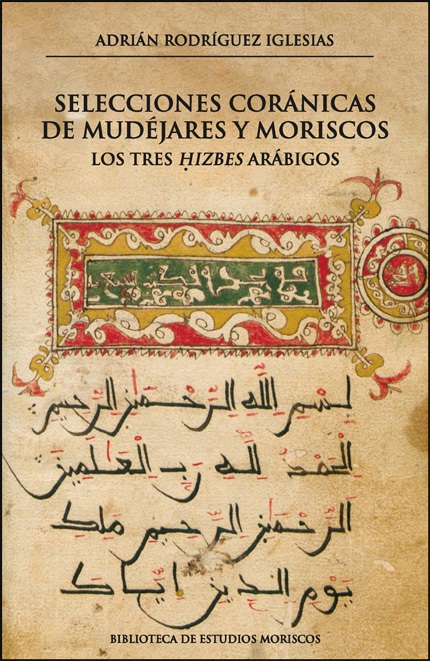 ADRIÁN RODRÍGUEZ IGLESIAS
SELECCIONES CORÁNICAS
DE MUDÉJARES Y MORISCOS
LOS TRES ḤIZBES ARÁBIGOS
بسم الله الرحمن الرحيم
الحمد لله رب العلمين
الرحمن الرحيم ملك
يوم الدين إياك
BIBLIOTECA DE ESTUDIOS MORISCOS